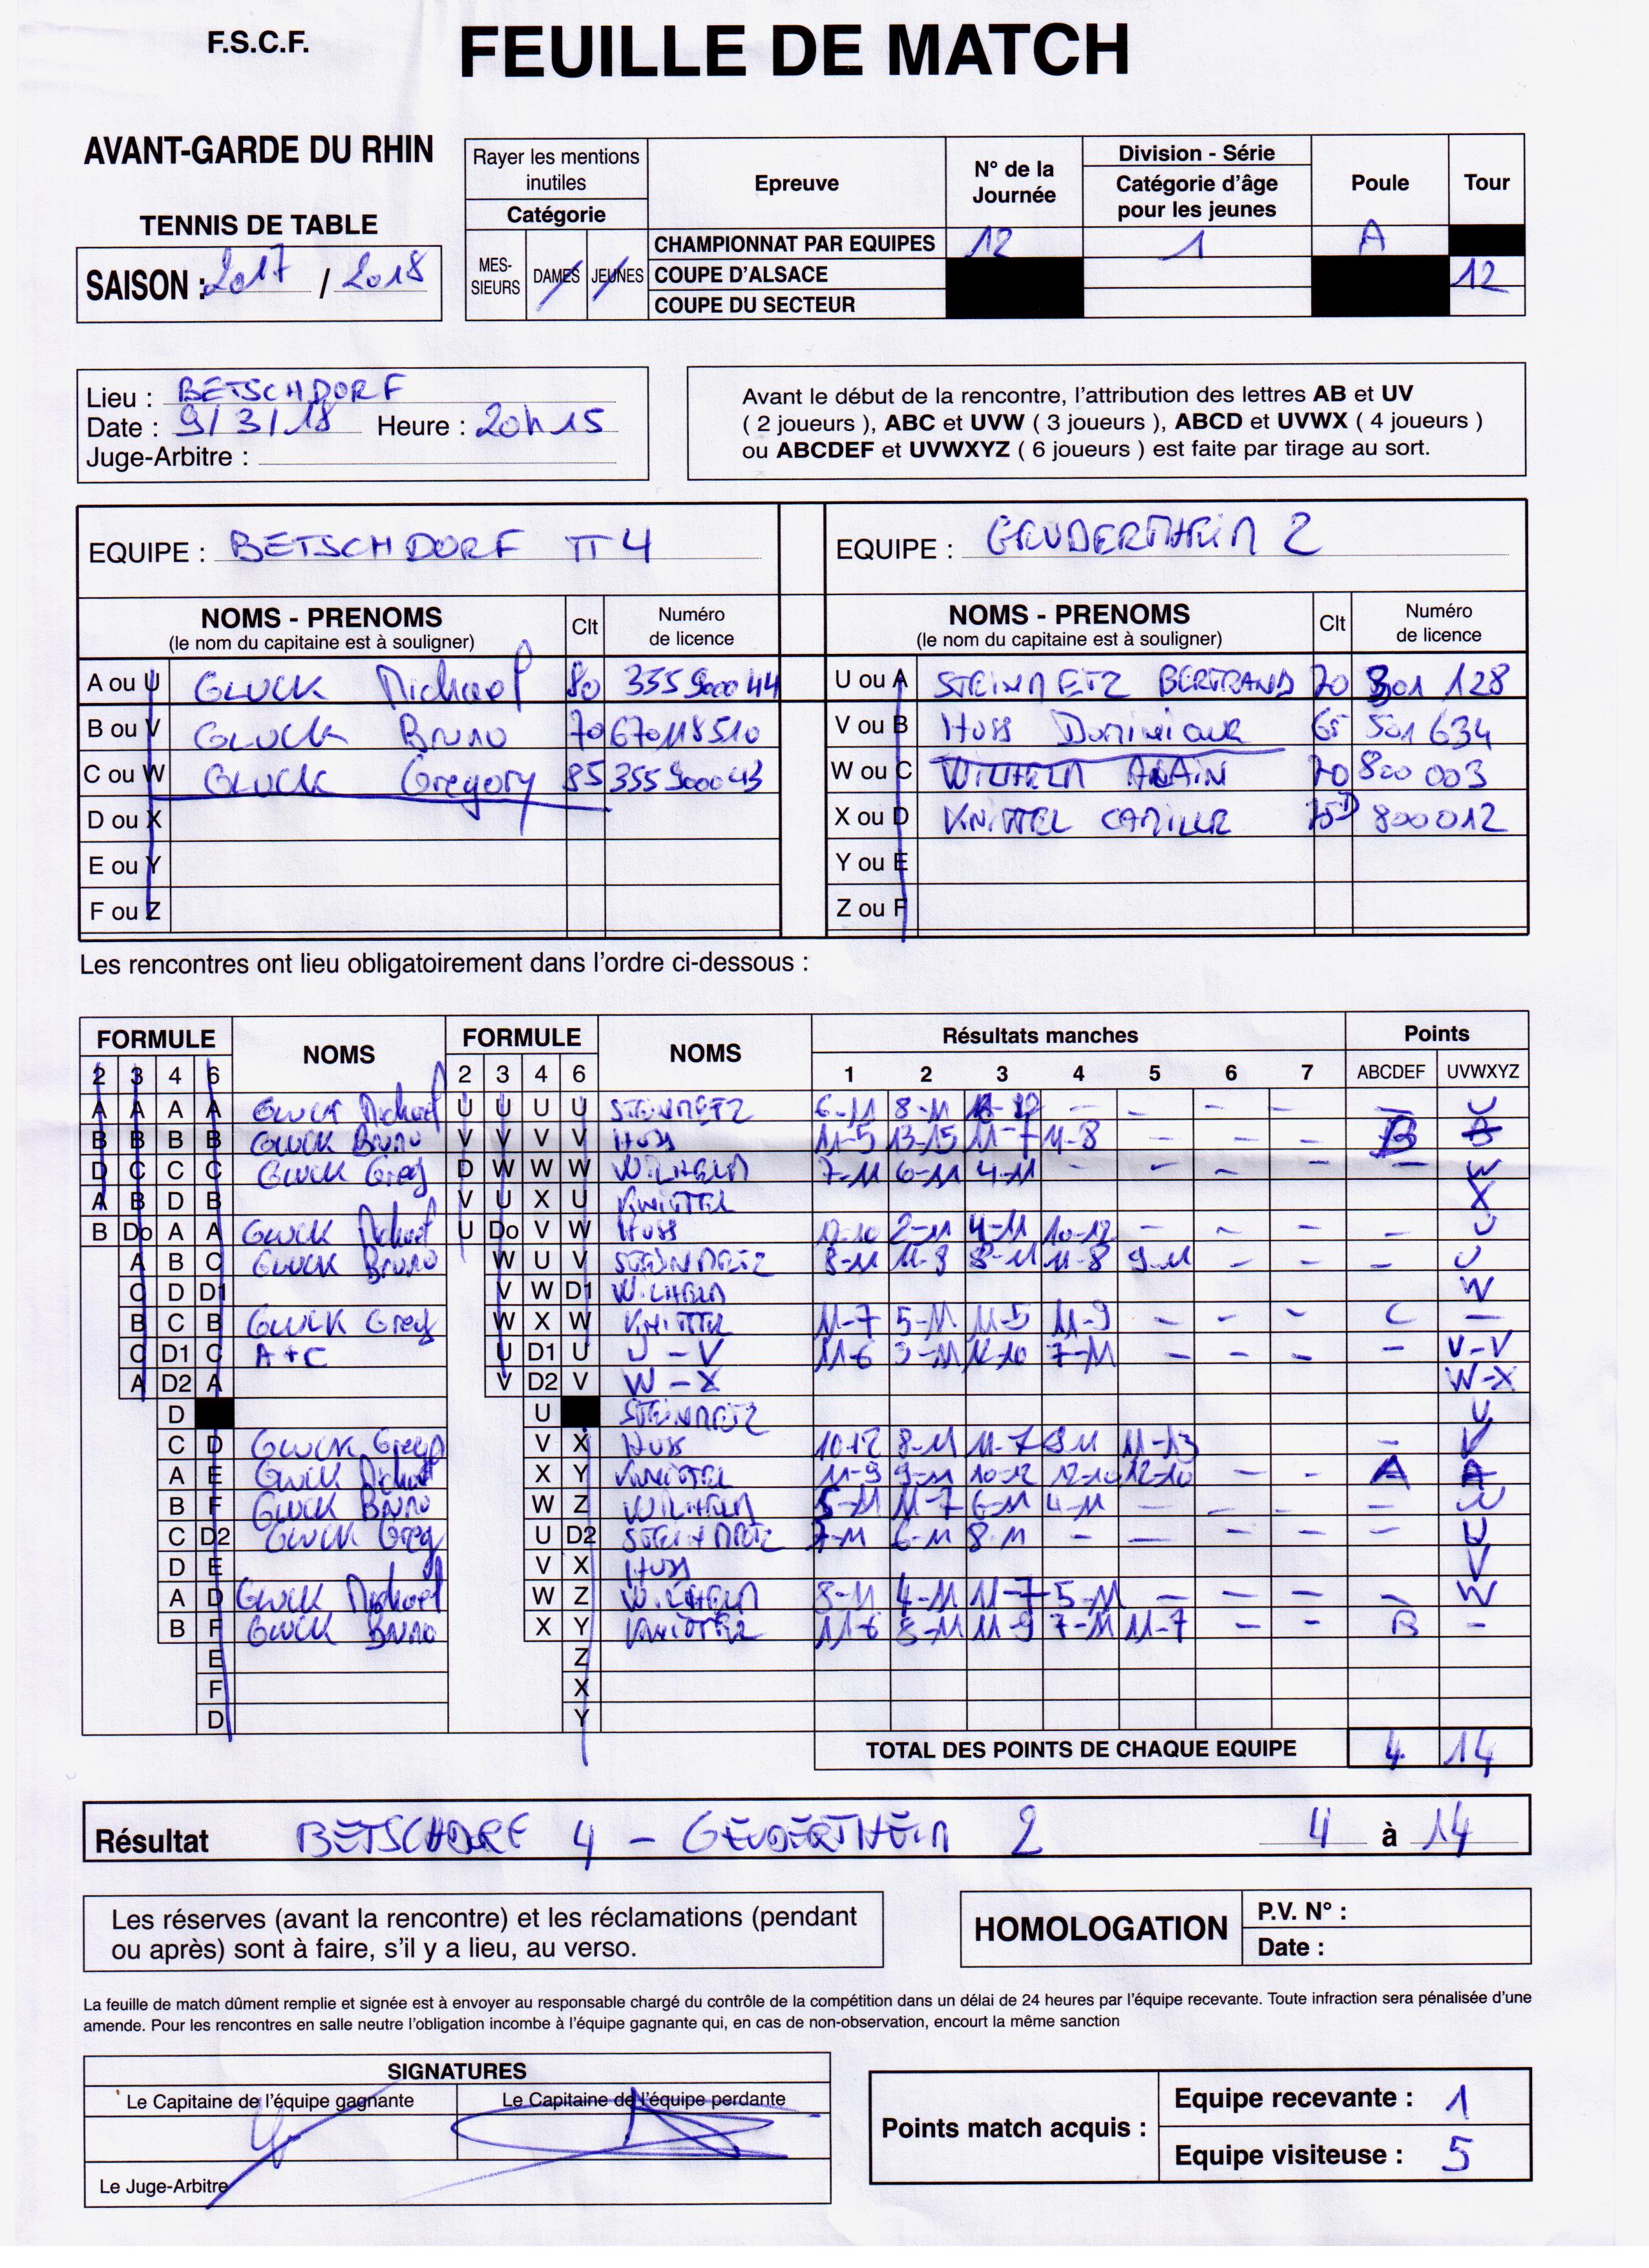 F.S.C.F.
FEUILLE DE MATCH
AVANT-GARDE DU RHIN
TENNIS DE TABLE
SAISON : 2017 / 2018
Rayer les mentions inutiles
Catégorie
MES-SIEURS DAMES JEUNES
Epreuve N° de la Journée Division - Série Catégorie d'âge pour les jeunes Poule Tour
CHAMPIONNAT PAR EQUIPES 12 1 A
COUPE D'ALSACE 12
COUPE DU SECTEUR
Lieu : BETSCHDORF
Date : 9/3/18 Heure : 20h15
Juge-Arbitre :
Avant le début de la rencontre, l'attribution des lettres AB et UV
( 2 joueurs ), ABC et UVW ( 3 joueurs ), ABCD et UVWX ( 4 joueurs )
ou ABCDEF et UVWXYZ ( 6 joueurs ) est faite par tirage au sort.
EQUIPE : BETSCHDORF TT 4
EQUIPE : GEUDERTHEIM 2
NOMS - PRENOMS (le nom du capitaine est à souligner) Clt Numéro de licence
NOMS - PRENOMS (le nom du capitaine est à souligner) Clt Numéro de licence
A ou U GLUCK Michael 80 355900044 U ou A STEINMETZ BERTRAND 70 301 128
B ou V GLUCK Bruno 70 670118510 V ou B HUSS Dominique 65 501 634
C ou W GLUCK Gregory 85 355900043 W ou C WILHELM ALAIN 70 800 003
D ou X X ou D KNITTEL CAMILLE 75D 800012
E ou Y Y ou E
F ou Z Z ou F
Les rencontres ont lieu obligatoirement dans l'ordre ci-dessous :
FORMULE NOMS FORMULE NOMS Résultats manches Points
2 3 4 6 2 3 4 6 1 2 3 4 5 6 7 ABCDEF UVWXYZ
A A A A GLUCK Michael U U U U STEINMETZ 6-11 8-11 - - - - U
B B B B GLUCK Bruno V V V V HUSS 11-5 13-15 11-7 11-8 - - - B
D C C C GLUCK Greg D W W W WILHELM 7-11 6-11 4-11 - - - - - W
A B D B V U X U KNITTEL X
B Do A A GLUCK Michael U Do V W HUSS 12-10 2-11 4-11 10-12 - - - - U
A B C GLUCK Bruno W U V STEINMETZ 8-11 11-9 8-11 11-8 9-11 - - - U
C D D1 V W D1 WILHELM W
B C B GLUCK Greg W X W KNITTEL 11-7 5-11 11-5 11-9 - - - C -
C D1 C A+C U D1 U U-V 11-6 9-11 - 7-11 - - - - U-V
A D2 A V D2 V W-X W-X
D U STEINMETZ U
C D GLUCK Greg V X HUSS 10-12 8-11 11-7 11-13 - V
A E GLUCK Michael X Y KNITTEL 11-9 9-11 10-12 12-10 12-10 - - A A
B F GLUCK Bruno W Z WILHELM 5-11 11-7 6-11 4-11 - - - - W
C D2 GLUCK Greg U D2 STEINMETZ 7-11 6-11 8-11 - - - - - U
D E V X HUSS V
A D GLUCK Michael W Z WILHELM 8-11 4-11 11-7 5-11 - - - - W
B F GLUCK Bruno X Y KNITTEL 11-6 8-11 11-9 7-11 11-7 - - B -
E Z
F X
D Y
TOTAL DES POINTS DE CHAQUE EQUIPE 4 14
Résultat BETSCHDORF 4 - GEUDERTHEIM 2 4 à 14
Les réserves (avant la rencontre) et les réclamations (pendant
ou après) sont à faire, s'il y a lieu, au verso.
HOMOLOGATION P.V. N° :
Date :
La feuille de match dûment remplie et signée est à envoyer au responsable chargé du contrôle de la compétition dans un délai de 24 heures par l'équipe recevante. Toute infraction sera pénalisée d'une
amende. Pour les rencontres en salle neutre l'obligation incombe à l'équipe gagnante qui, en cas de non-observation, encourt la même sanction
SIGNATURES
Le Capitaine de l'équipe gagnante Le Capitaine de l'équipe perdante
Le Juge-Arbitre
Points match acquis :
Equipe recevante : 1
Equipe visiteuse : 5